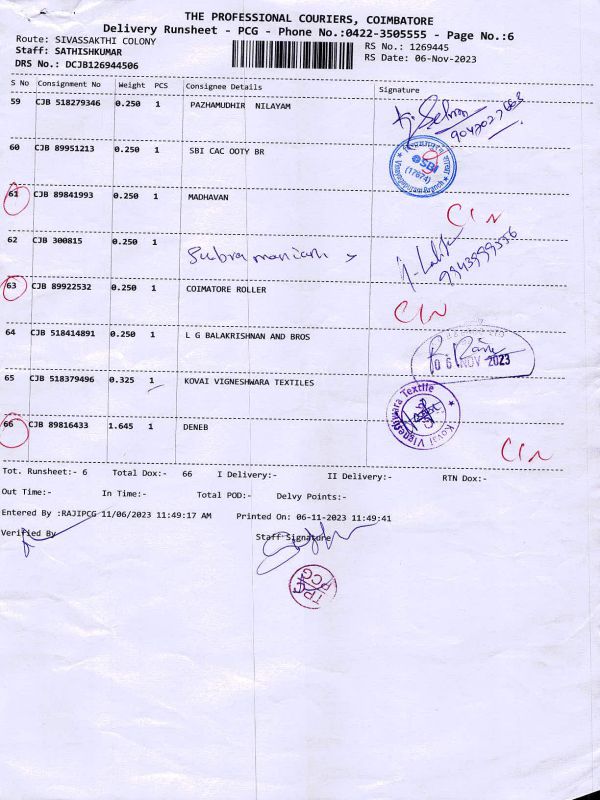 THE PROFESSIONAL COURIERS, COIMBATORE
Delivery Runsheet - PCG - Phone No.:0422-3505555 - Page No.:6
Route: SIVASSAKTHI COLONY
Staff: SATHISHKUMAR
DRS No.: DCJB126944506
RS No.: 1269445
RS Date: 06-Nov-2023
S No Consignment No Weight PCS Consignee Details Signature
59 CJB 518279346 0.250 1 PAZHAMUDHIR NILAYAM
60 CJB 89951213 0.250 1 SBI CAC OOTY BR
SBI
(17874)
61 CJB 89841993 0.250 1 MADHAVAN
CIN
62 CJB 300815 0.250 1 Subramaniam
9943999556
63 CJB 89922532 0.250 1 COIMATORE ROLLER
CIN
64 CJB 518414891 0.250 1 L G BALAKRISHNAN AND BROS
06 NOV 2023
65 CJB 518379496 0.325 1 KOVAI VIGNESHWARA TEXTILES
Kovai Vigneshwara Textile
66 CJB 89816433 1.645 1 DENEB
CIN
Tot. Runsheet:- 6 Total Dox:- 66 I Delivery:- II Delivery:- RTN Dox:-
Out Time:- In Time:- Total POD:- Delvy Points:-
Entered By :RAJIPCG 11/06/2023 11:49:17 AM Printed On: 06-11-2023 11:49:41
Verified By Staff Signature